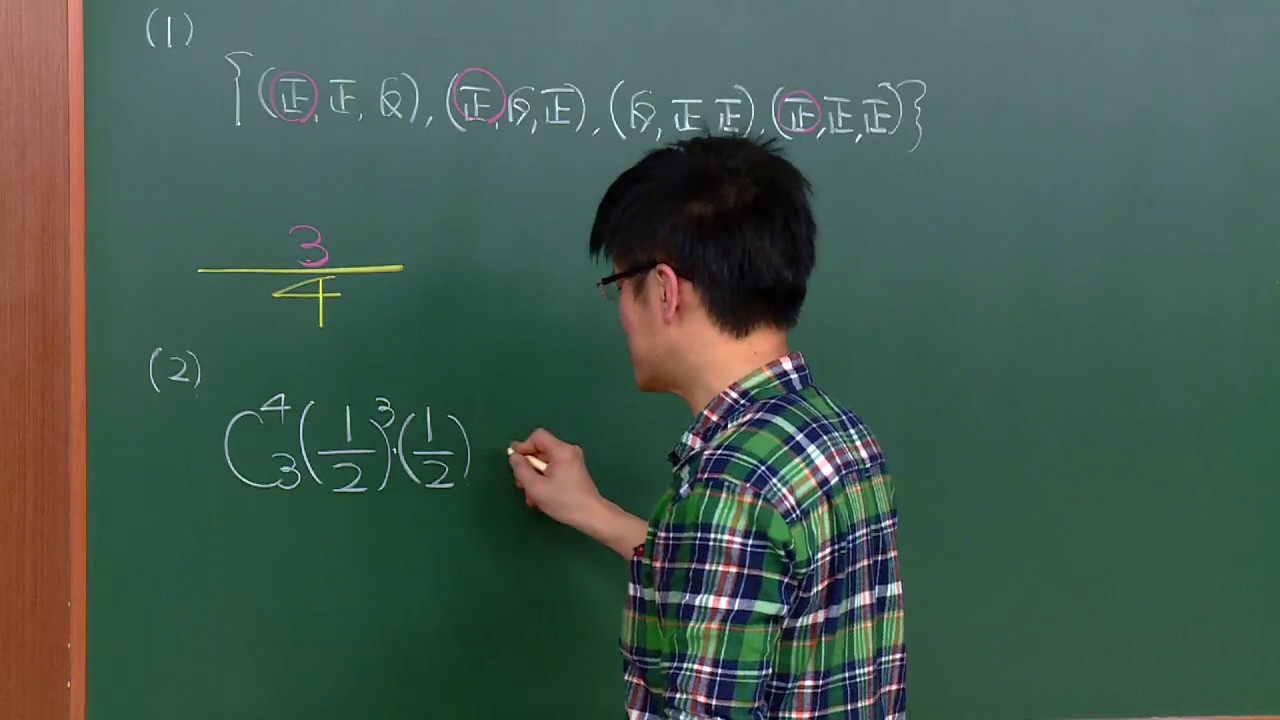 (1)
{(正,正,反),(正,反,正),(反,正,正),(正,正,正)}
3
4
(2)
C⁴₃(1/2)³·(1/2)